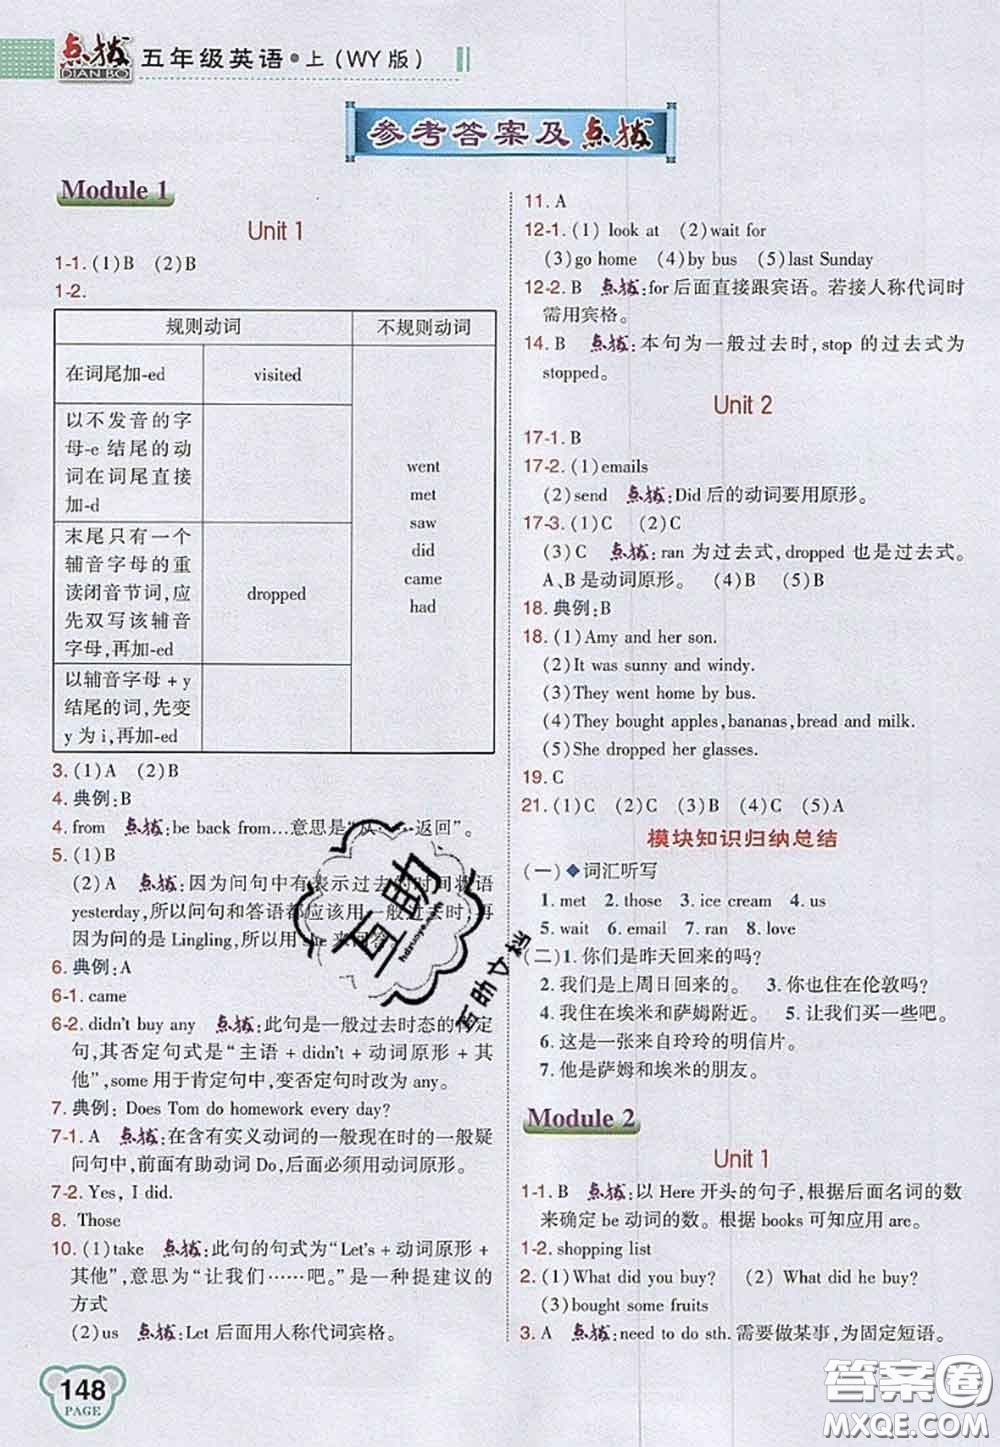 点拨 DIAN BO 五年级英语·上(WY版)
参考答案及点拨
Module 1
Unit 1
1-1. (1)B (2)B
1-2.
规则动词 不规则动词
在词尾加-ed visited
以不发音的字
母-e 结尾的动
词在词尾直接
加-d
末尾只有一个
辅音字母的重
读闭音节词,应
先双写该辅音
字母,再加-ed
dropped
以辅音字母 + y
结尾的词,先变
y 为 i,再加-ed
went
met
saw
did
came
had
3. (1)A (2)B
4. 典例:B
4. from 点拨:be back from…意思是“从……返回”。
5. (1)B
(2)A 点拨:因为问句中有表示过去的时间状语
yesterday,所以问句和答语都应该用一般过去时,再
因为问的是 Lingling,所以用 she 来回答。
6. 典例:A
6-1. came
6-2. didn't buy any 点拨:此句是一般过去时态的否定
句,其否定句式是“主语 + didn't + 动词原形 + 其
他”,some 用于肯定句中,变否定句时改为 any。
7. 典例: Does Tom do homework every day?
7-1. A 点拨:在含有实义动词的一般现在时的一般疑
问句中,前面有助动词 Do,后面必须用动词原形。
7-2. Yes, I did.
8. Those
10. (1)take 点拨:此句的句式为“Let's + 动词原形 +
其他”,意思为“让我们……吧。”是一种提建议的
方式
(2)us 点拨:Let 后面用人称代词宾格。
148
PAGE
11. A
12-1. (1) look at (2)wait for
(3)go home (4)by bus (5)last Sunday
12-2. B 点拨:for 后面直接跟宾语。若接人称代词时
需用宾格。
14. B 点拨:本句为一般过去时,stop 的过去式为
stopped。
Unit 2
17-1. B
17-2. (1)emails
(2)send 点拨:Did 后的动词要用原形。
17-3. (1)C (2)C
(3)C 点拨:ran 为过去式,dropped 也是过去式。
A、B 是动词原形。 (4)B (5)B
18. 典例:B
18. (1)Amy and her son.
(2)It was sunny and windy.
(3)They went home by bus.
(4)They bought apples,bananas,bread and milk.
(5)She dropped her glasses.
19. C
21. (1)C (2)C (3)A (4)C (5)A
模块知识归纳总结
(一)◆词汇听写
1. met 2. those 3. ice cream 4. us
5. wait 6. email 7. ran 8. love
(二)1. 你们是昨天回来的吗?
2. 我们是上周日回来的。 3. 你也住在伦敦吗?
4. 我住在埃米和萨姆附近。 5. 让我们买一些吧。
6. 这是一张来自玲玲的明信片。
7. 他是萨姆和埃米的朋友。
Module 2
Unit 1
1-1. B 点拨:以 Here 开头的句子,根据后面名词的数
来确定 be 动词的数。根据 books 可知应用 are。
1-2. shopping list
2. (1)What did you buy? (2) What did he buy?
(3)bought some fruits
3. A 点拨:need to do sth. 需要做某事,为固定短语。
互助
hdzuoye.com
互助文档
答案圈
MXQE.COM